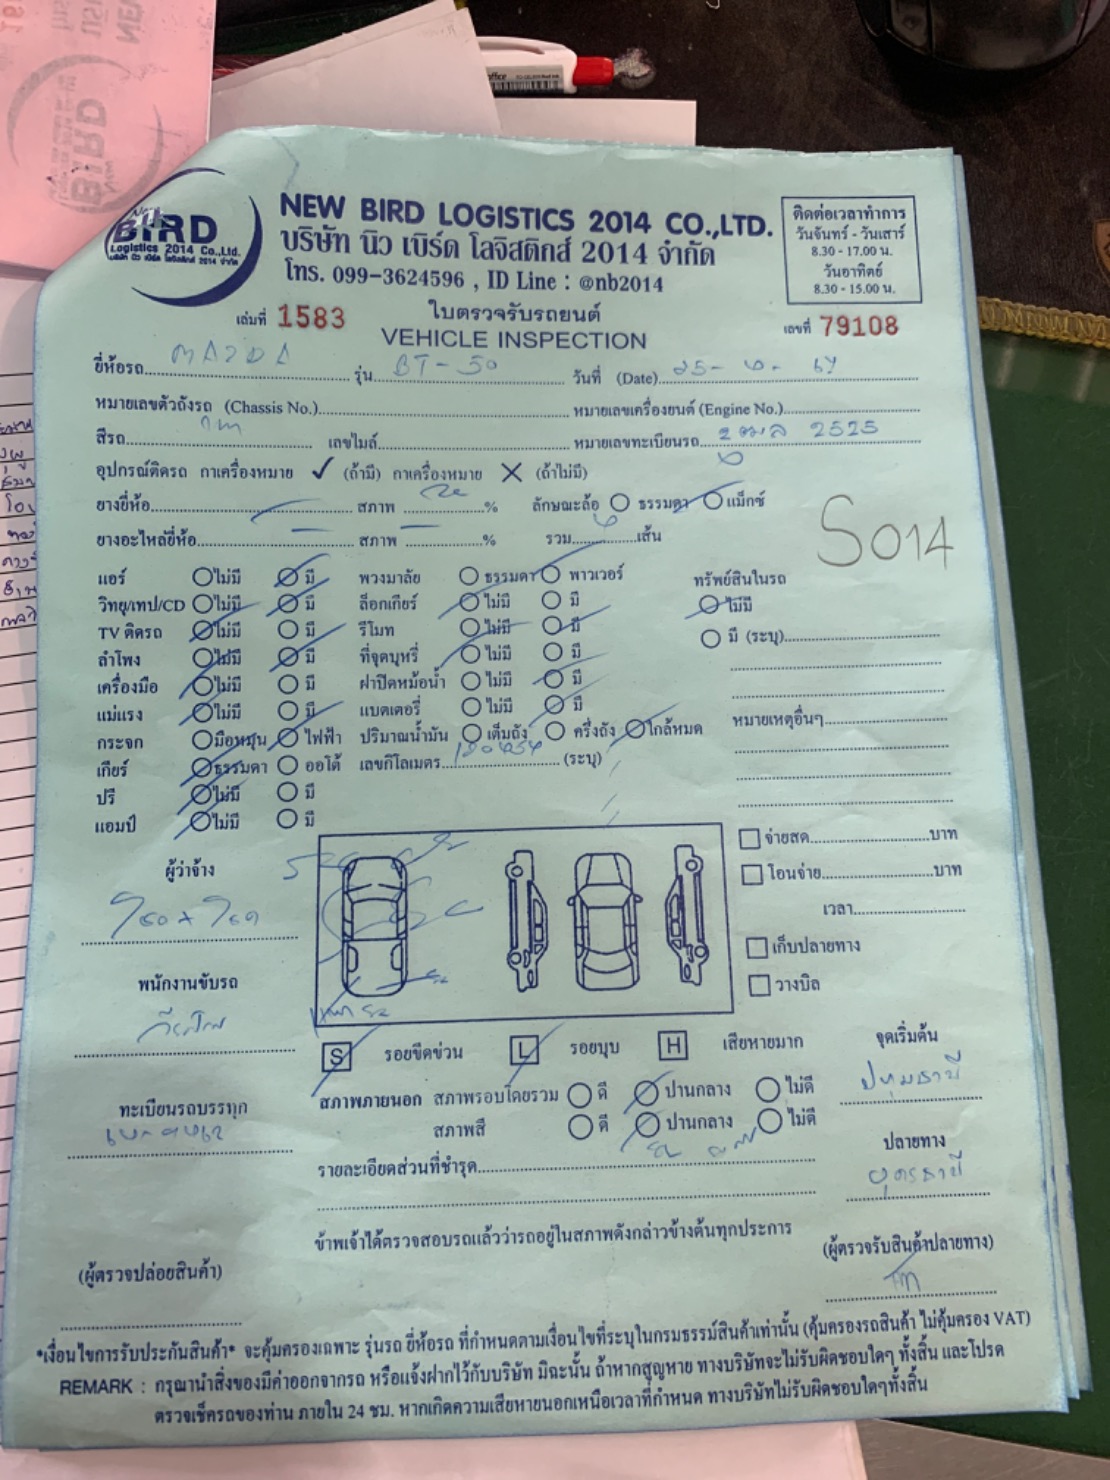 NEW BIRD LOGISTICS 2014 CO.,LTD.
บริษัท นิว เบิร์ด โลจิสติกส์ 2014 จำกัด
โทร. 099-3624596 , ID Line : @nb2014
New
BIRD
Logistics 2014 Co.,Ltd.
บริษัท นิว เบิร์ด โลจิสติกส์ 2014 จำกัด
ติดต่อเวลาทำการ
วันจันทร์ - วันเสาร์
8.30 - 17.00 น.
วันอาทิตย์
8.30 - 15.00 น.
เล่มที่ 1583
ใบตรวจรับรถยนต์
VEHICLE INSPECTION
เลขที่ 79108
ยี่ห้อรถ MAZDA รุ่น BT-50 วันที่ (Date)
หมายเลขตัวถังรถ (Chassis No.) หมายเลขเครื่องยนต์ (Engine No.)
สีรถ เทา เลขไมล์ หมายเลขทะเบียนรถ 2525
อุปกรณ์ติดรถ กาเครื่องหมาย ✓ (ถ้ามี) กาเครื่องหมาย ✗ (ถ้าไม่มี)
ยางยี่ห้อ สภาพ % ลักษณะล้อ ธรรมดา แม็กซ์
ยางอะไหล่ยี่ห้อ สภาพ % รวม เส้น
S014
แอร์ ไม่มี มี พวงมาลัย ธรรมดา พาวเวอร์ ทรัพย์สินในรถ
วิทยุ/เทป/CD ไม่มี มี ล็อกเกียร์ ไม่มี มี ไม่มี
TV ติดรถ ไม่มี มี รีโมท ไม่มี มี มี (ระบุ)
ลำโพง ไม่มี มี ที่จุดบุหรี่ ไม่มี มี
เครื่องมือ ไม่มี มี ฝาปิดหม้อน้ำ ไม่มี มี
แม่แรง ไม่มี มี แบตเตอรี่ ไม่มี มี หมายเหตุอื่นๆ
กระจก มือหมุน ไฟฟ้า ปริมาณน้ำมัน เต็มถัง ครึ่งถัง ใกล้หมด
เกียร์ ธรรมดา ออโต้ เลขกิโลเมตร (ระบุ)
ปรี ไม่มี มี
แอมป์ ไม่มี มี
ผู้ว่าจ้าง
พนักงานขับรถ
ทะเบียนรถบรรทุก
จ่ายสด บาท
โอนจ่าย บาท
เวลา
เก็บปลายทาง
วางบิล
S รอยขีดข่วน L รอยบุบ H เสียหายมาก
จุดเริ่มต้น
ปทุมธานี
สภาพภายนอก สภาพรอบโดยรวม ดี ปานกลาง ไม่ดี
สภาพสี ดี ปานกลาง ไม่ดี
ปลายทาง
อุดรธานี
รายละเอียดส่วนที่ชำรุด
ข้าพเจ้าได้ตรวจสอบรถแล้วว่ารถอยู่ในสภาพดังกล่าวข้างต้นทุกประการ
(ผู้ตรวจปล่อยสินค้า)
(ผู้ตรวจรับสินค้าปลายทาง)
*เงื่อนไขการรับประกันสินค้า* จะคุ้มครองเฉพาะ รุ่นรถ ยี่ห้อรถ ที่กำหนดตามเงื่อนไขที่ระบุในกรมธรรม์สินค้าเท่านั้น (คุ้มครองรถสินค้า ไม่คุ้มครอง VAT)
REMARK : กรุณานำสิ่งของมีค่าออกจากรถ หรือแจ้งฝากไว้กับบริษัท มิฉะนั้น ถ้าหากสูญหาย ทางบริษัทจะไม่รับผิดชอบใดๆ ทั้งสิ้น และโปรด
ตรวจเช็ครถของท่าน ภายใน 24 ชม. หากเกิดความเสียหายนอกเหนือเวลาที่กำหนด ทางบริษัทไม่รับผิดชอบใดๆทั้งสิ้น